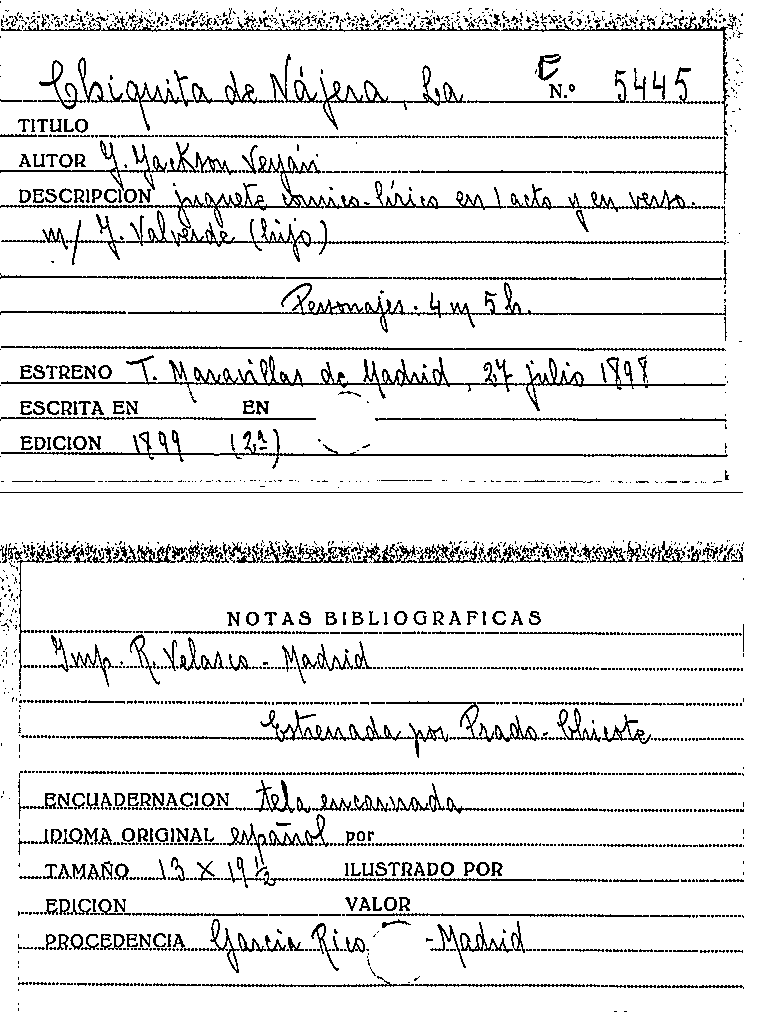 Chiquita de Nájera, La E N.º 5445
TITULO
AUTOR J. Jackson Veyán
DESCRIPCION juguete cómico-lírico en 1 acto y en verso.
m/ J. Valverde (hijo)
Personajes: 4 m 5 h.
ESTRENO T. Maravillas de Madrid, 27 julio 1898
ESCRITA EN EN
EDICION 1899 (2ª)
NOTAS BIBLIOGRAFICAS
Imp. R. Velasco - Madrid
Estrenada por Prado-Chicote
ENCUADERNACION tela encarnada
IDIOMA ORIGINAL español por
TAMAÑO 13 X 19 ½ ILUSTRADO POR
EDICION VALOR
PROCEDENCIA García Rico - Madrid